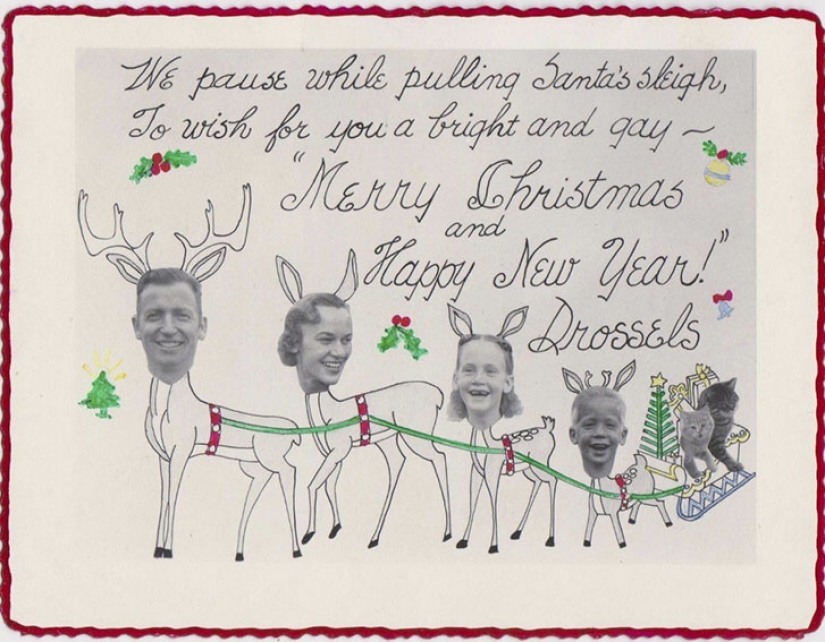 We pause while pulling Santa's sleigh,
To wish for you a bright and gay ~
"Merry Christmas
and
Happy New Year!"
Drossels